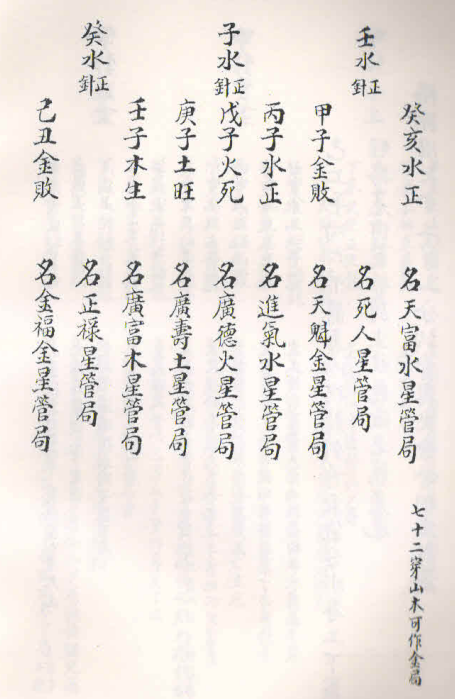 癸亥水正 名天富水星管局 七十二穿山木可作金局
壬水正針 名死人星管局
甲子金敗 名天魁金星管局
丙子水正 名進氣水星管局
子水正針 戊子火死 名廣德火星管局
庚子土旺 名廣壽土星管局
壬子木生 名廣富木星管局
癸水正針 名正祿星管局
己丑金敗 名金福金星管局